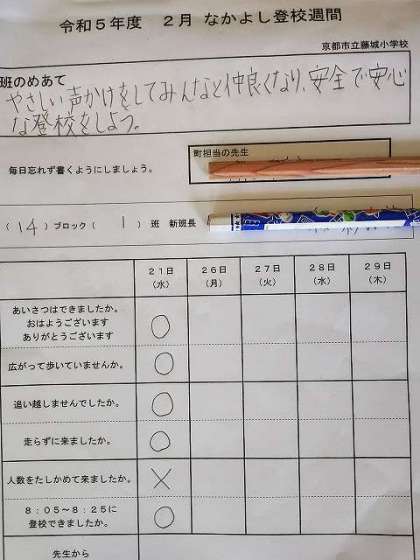 令和５年度　２月 なかよし登校週間
京都市立藤城小学校
班のめあて
やさしい声かけをしてみんなと仲良くなり、安全で安心
な登校をしよう。
町担当の先生
毎日忘れず書くようにしましょう。
（ 14 ）ブロック（ 1 ）班　新班長
２１日 ２６日 ２７日 ２８日 ２９日
（水） （月） （火） （水） （木）
あいさつはできましたか。
おはようございます ○
ありがとうございます
広がって歩いていませんか。 ○
追い越しませんでしたか。 ○
走らずに来ましたか。 ○
人数をたしかめて来ましたか。 ×
８：０５～８：２５に ○
登校できましたか。
先生から